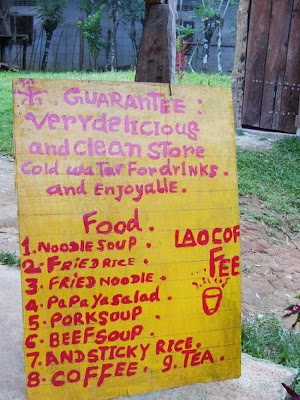 * GUARANTEE :
verydelicious
and clean store
Cold watar for drinks.
and Enjoyable.
Food.
1. NOODLE SOUP .
2. FRIED RICE .
3. FRIED NOODLE .
4. PaPayasalad .
5. PORK SOUP .
6. BEEF SOUP .
7. AND STICKY RICE.
8. COFFEE. 9. TEA.
LAO COF
FEE